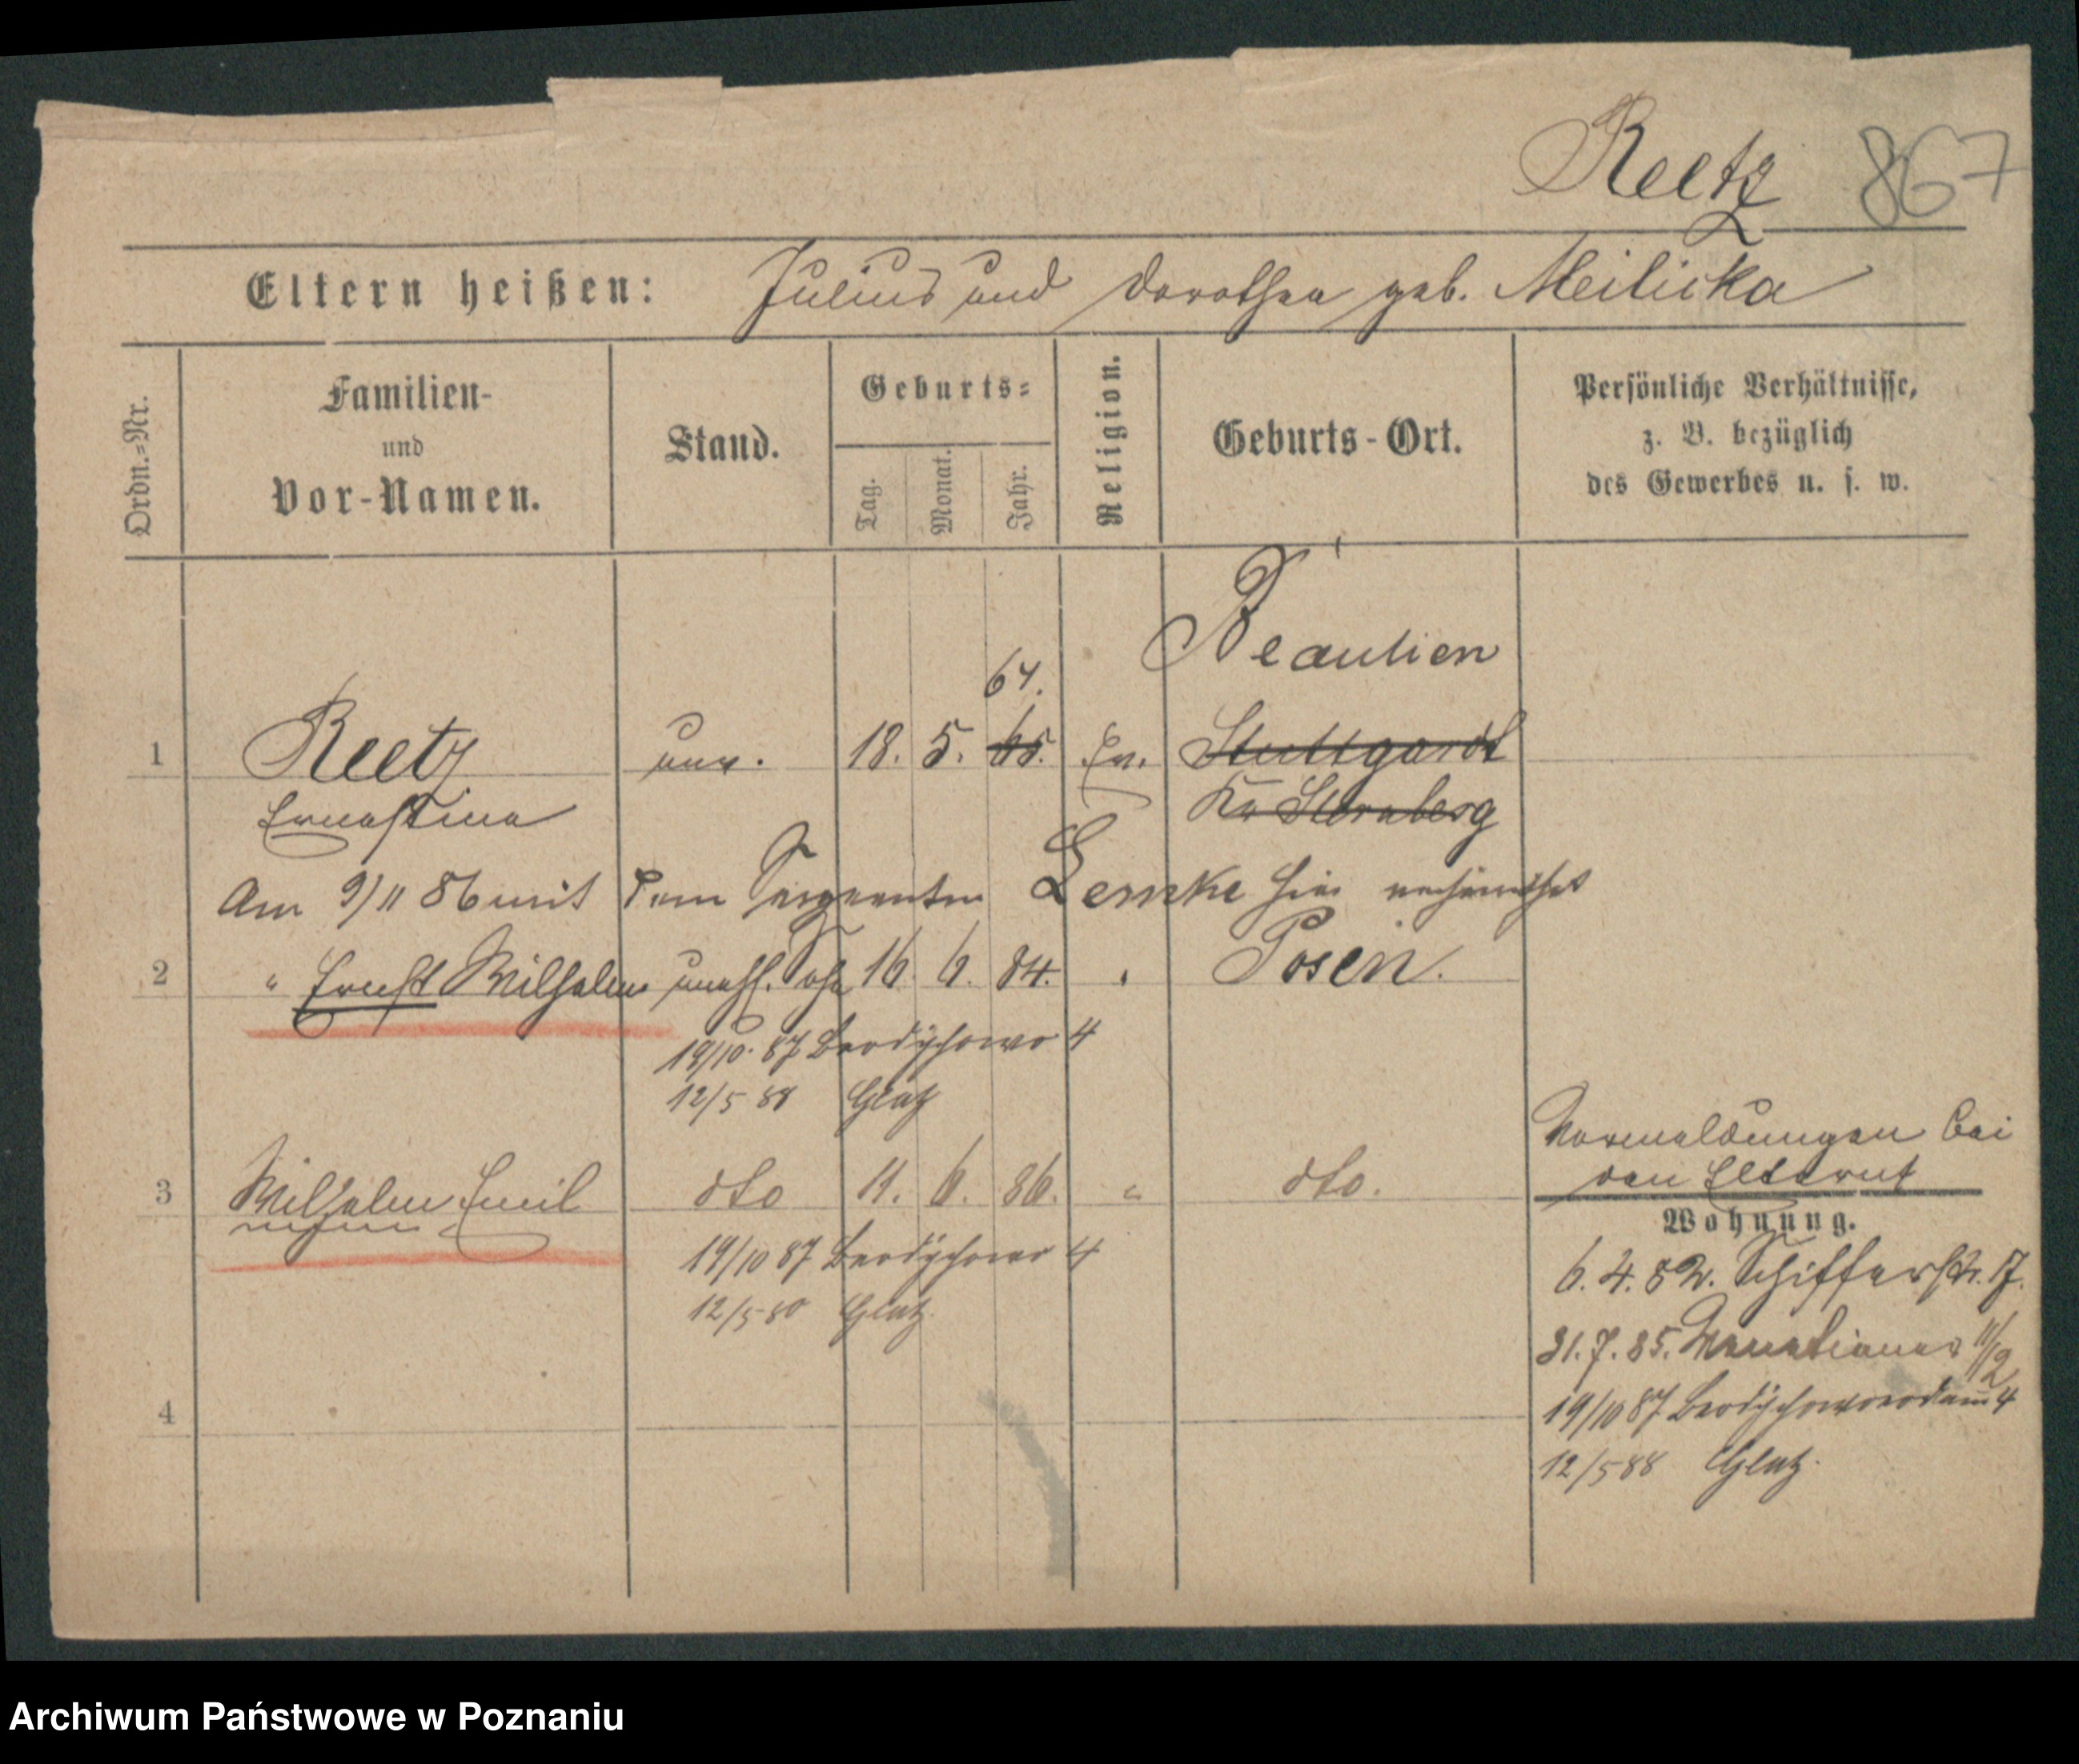 Reetz 867
Eltern heißen: Julius und Dorothea geb. Meilicka
Ordn.-Nr.
Familien-
und
Vor-Namen.
Stand.
Geburts-
Tag.
Monat.
Jahr.
Religion.
Geburts-Ort.
Persönliche Verhältnisse,
z. B. bezüglich
des Gewerbes u. s. w.
Beaulien
64.
1 Reetz unv. 18. 5. 65. Ev. Stuttgardt
Ernestine Kr Sternberg
Am 9/11 86 mit dem Sergeanten Lemke hier verheirathet
2 " Ernst Wilhelm unehl. Sohn 16. 6. 84. " Posen.
19/10. 87 Berdychowo 4
12/5 88 Glatz
3 Wilhelm Emil dto 11. 6. 86. " dto.
19/10 87 Berdychowo 4
12/5 88 Glatz.
4
bei
den Eltern
Wohnung.
6. 4. 82. Schifferstr. 17.
31. 7. 85. Venetianer 11/12
19/10 87 Berdychowoerdamm 4
12/5 88 Glatz.
Archiwum Państwowe w Poznaniu